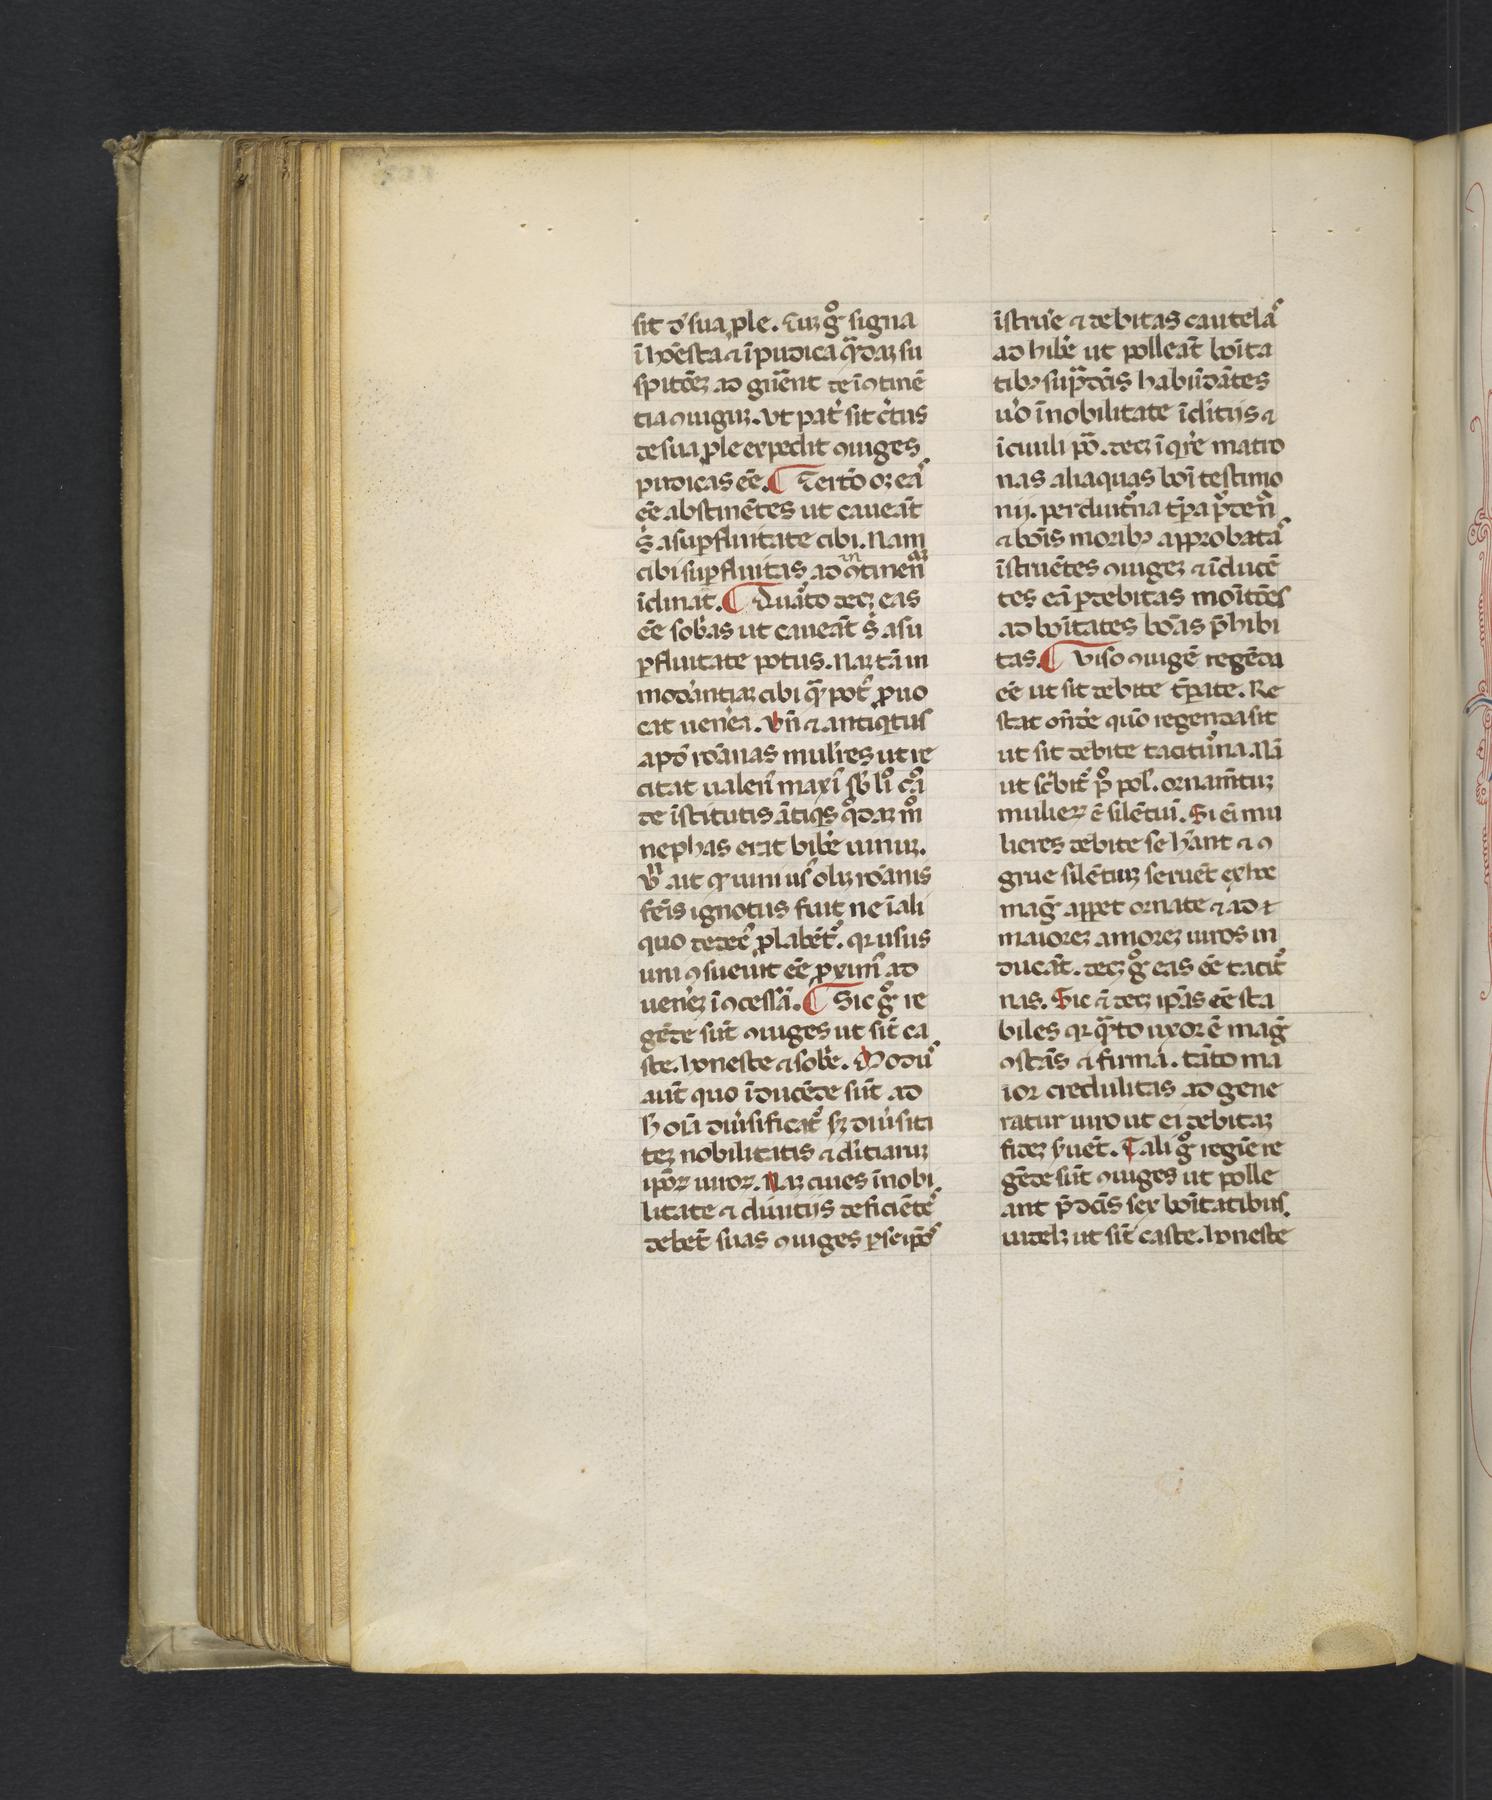 sit ď sua ꝓle. Cuꝫ gͦ signa
ī hōesta ⁊ īpudica q̄daꝫ su
spitōeꝫ ad gn̄ent de īꝯtinē
tia ꝯiugiuꝫ. Ut pat̉ sit c̉tus
de sua ꝓle expedit ꝯiuges
pudicas eē. ¶ Tertō oꝫ eaˢ
eē abstinētes ut caueāt
s̉ a suꝑfluitate cibi. Nam
cibi suꝑfluitas ad ꝯtinen̄
īclinat. ¶ Quarto decꝫ eas
eē sobrias ut caueāt s̉ a su
ꝑfluitate potus. Naꝫ tā in
mod̉antiaꝫ cibi q̄ꝫ pot̉ ꝓuo
cat uenēa. Vn̄ ⁊ antiq̇tus
apd̓ roānas mulieres ut re
citat ualeri᷒ maxi᷒
de īstitutis ātiq̇s q̇daꝫ mͦ
nephas erat bib̉e uinuꝫ.
vn̄ ait ꝙ uini us᷒ oliꝫ roānis
feīs ignotus fuit ne ī ali
quo dedec᷒ ꝓlabēt̉. qꝛ usus
uini ꝯsueuit eē ꝓxim᷒ ad
uenēꝫ īꝯcessā. ¶ Sic gͦ re
gēde sūt ꝯiuges ut sīt ca
ste. honeste ⁊ sobrie. Modu᷒
aut̄ quo īducēde sūt ad
h̓ oīa diu̓sificat̉ ẜꝫ diu̓sita
teꝫ nobilitatis ⁊ diuitiaruꝫ
ip̄oꝝ uiroꝝ. Naꝫ ciues ī nobi
litate ⁊ diuitijs deficiētes
debēt suas ꝯiuges ꝑ seip̄os
īstrue̓ ⁊ debitas cautelaˢ
adhibe̓ ut polleāt boīta
tibꝫ sup̄dc̄is habūdātes
u̓o ī nobilitate ī diuitijs ⁊
ī ciuili po᷒. decꝫ īq̇re̓ matro
nas aliquas boī testimo
nij. per diut᷒na tp̄a p̄den̄
⁊ bois moribꝫ approbataˢ
īstruētes ꝯiugeꝫ ⁊ īducē
tes eā ꝑ debitas moītōes
ad boītates boas p̄hibi
tas. ¶ Viso ꝯiugē regēda
eē ut sit debite tp̄ate. Re
stat oñde̓ quō regenda sit
ut sit debite tacit᷒na. Nā
ut sc̓bit̉ pͦ pol̓. ornam̄tuꝫ
mulieꝝ ē silētiuꝫ. Si eī mu
lieres debite se h̓ant ⁊ ꝯ
grue silētiuꝫ seruēt ex hoc
mag̓ appēt ornate ⁊ ad
maioreꝫ amoreꝫ uiros in
ducāt. decꝫ gͦ eas eē tacit᷒
nas. Sic ē decꝫ ip̄as eē sta
biles qꝛ q̄ꝫto uxor ē mag̓
ꝯstās ⁊ firma. tāto ma
ior credulitas ad gene
ratur uiro ut ei debitaꝫ
fideꝫ s̓uēt. Tali gͦ regīe re
gēde sūt ꝯiuges ut polle
ant p̄dc̄is sex boītatibus.
uidelꝫ ut sīt caste. honeste